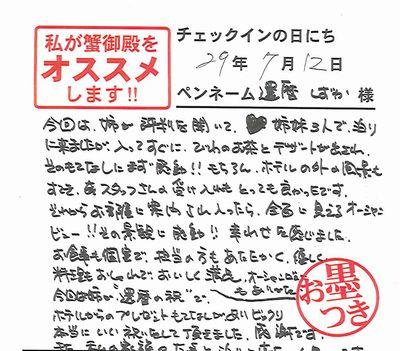 私が蟹御殿を
オススメ
します!!
チェックインの日にち
29年 7月 12日
ペンネーム 還暦 しずか 様
今回は、姉が 評判を聞いて、姉妹3人で、泊り
に来ましたが、入ってすぐに、びわのお茶とデザートが出され
そのもてなしにまず感動!! もちろん、ホテルの外の風景も
スタッフさんの受け入れも とっても良かったです。
それからお部屋に案内され入ったら、全面に見えるオーシャン
ビュー!! その景観に感動!! 幸わせを感じました。
お食事も個室で、担当の方もあたたかく、優しく
料理もおしゃれで、おいしく 満足
今回は姉が"還暦の祝"で、
ホテルからのプレゼントも
本当にいい祝いをして頂きました。感謝です。
お墨つき